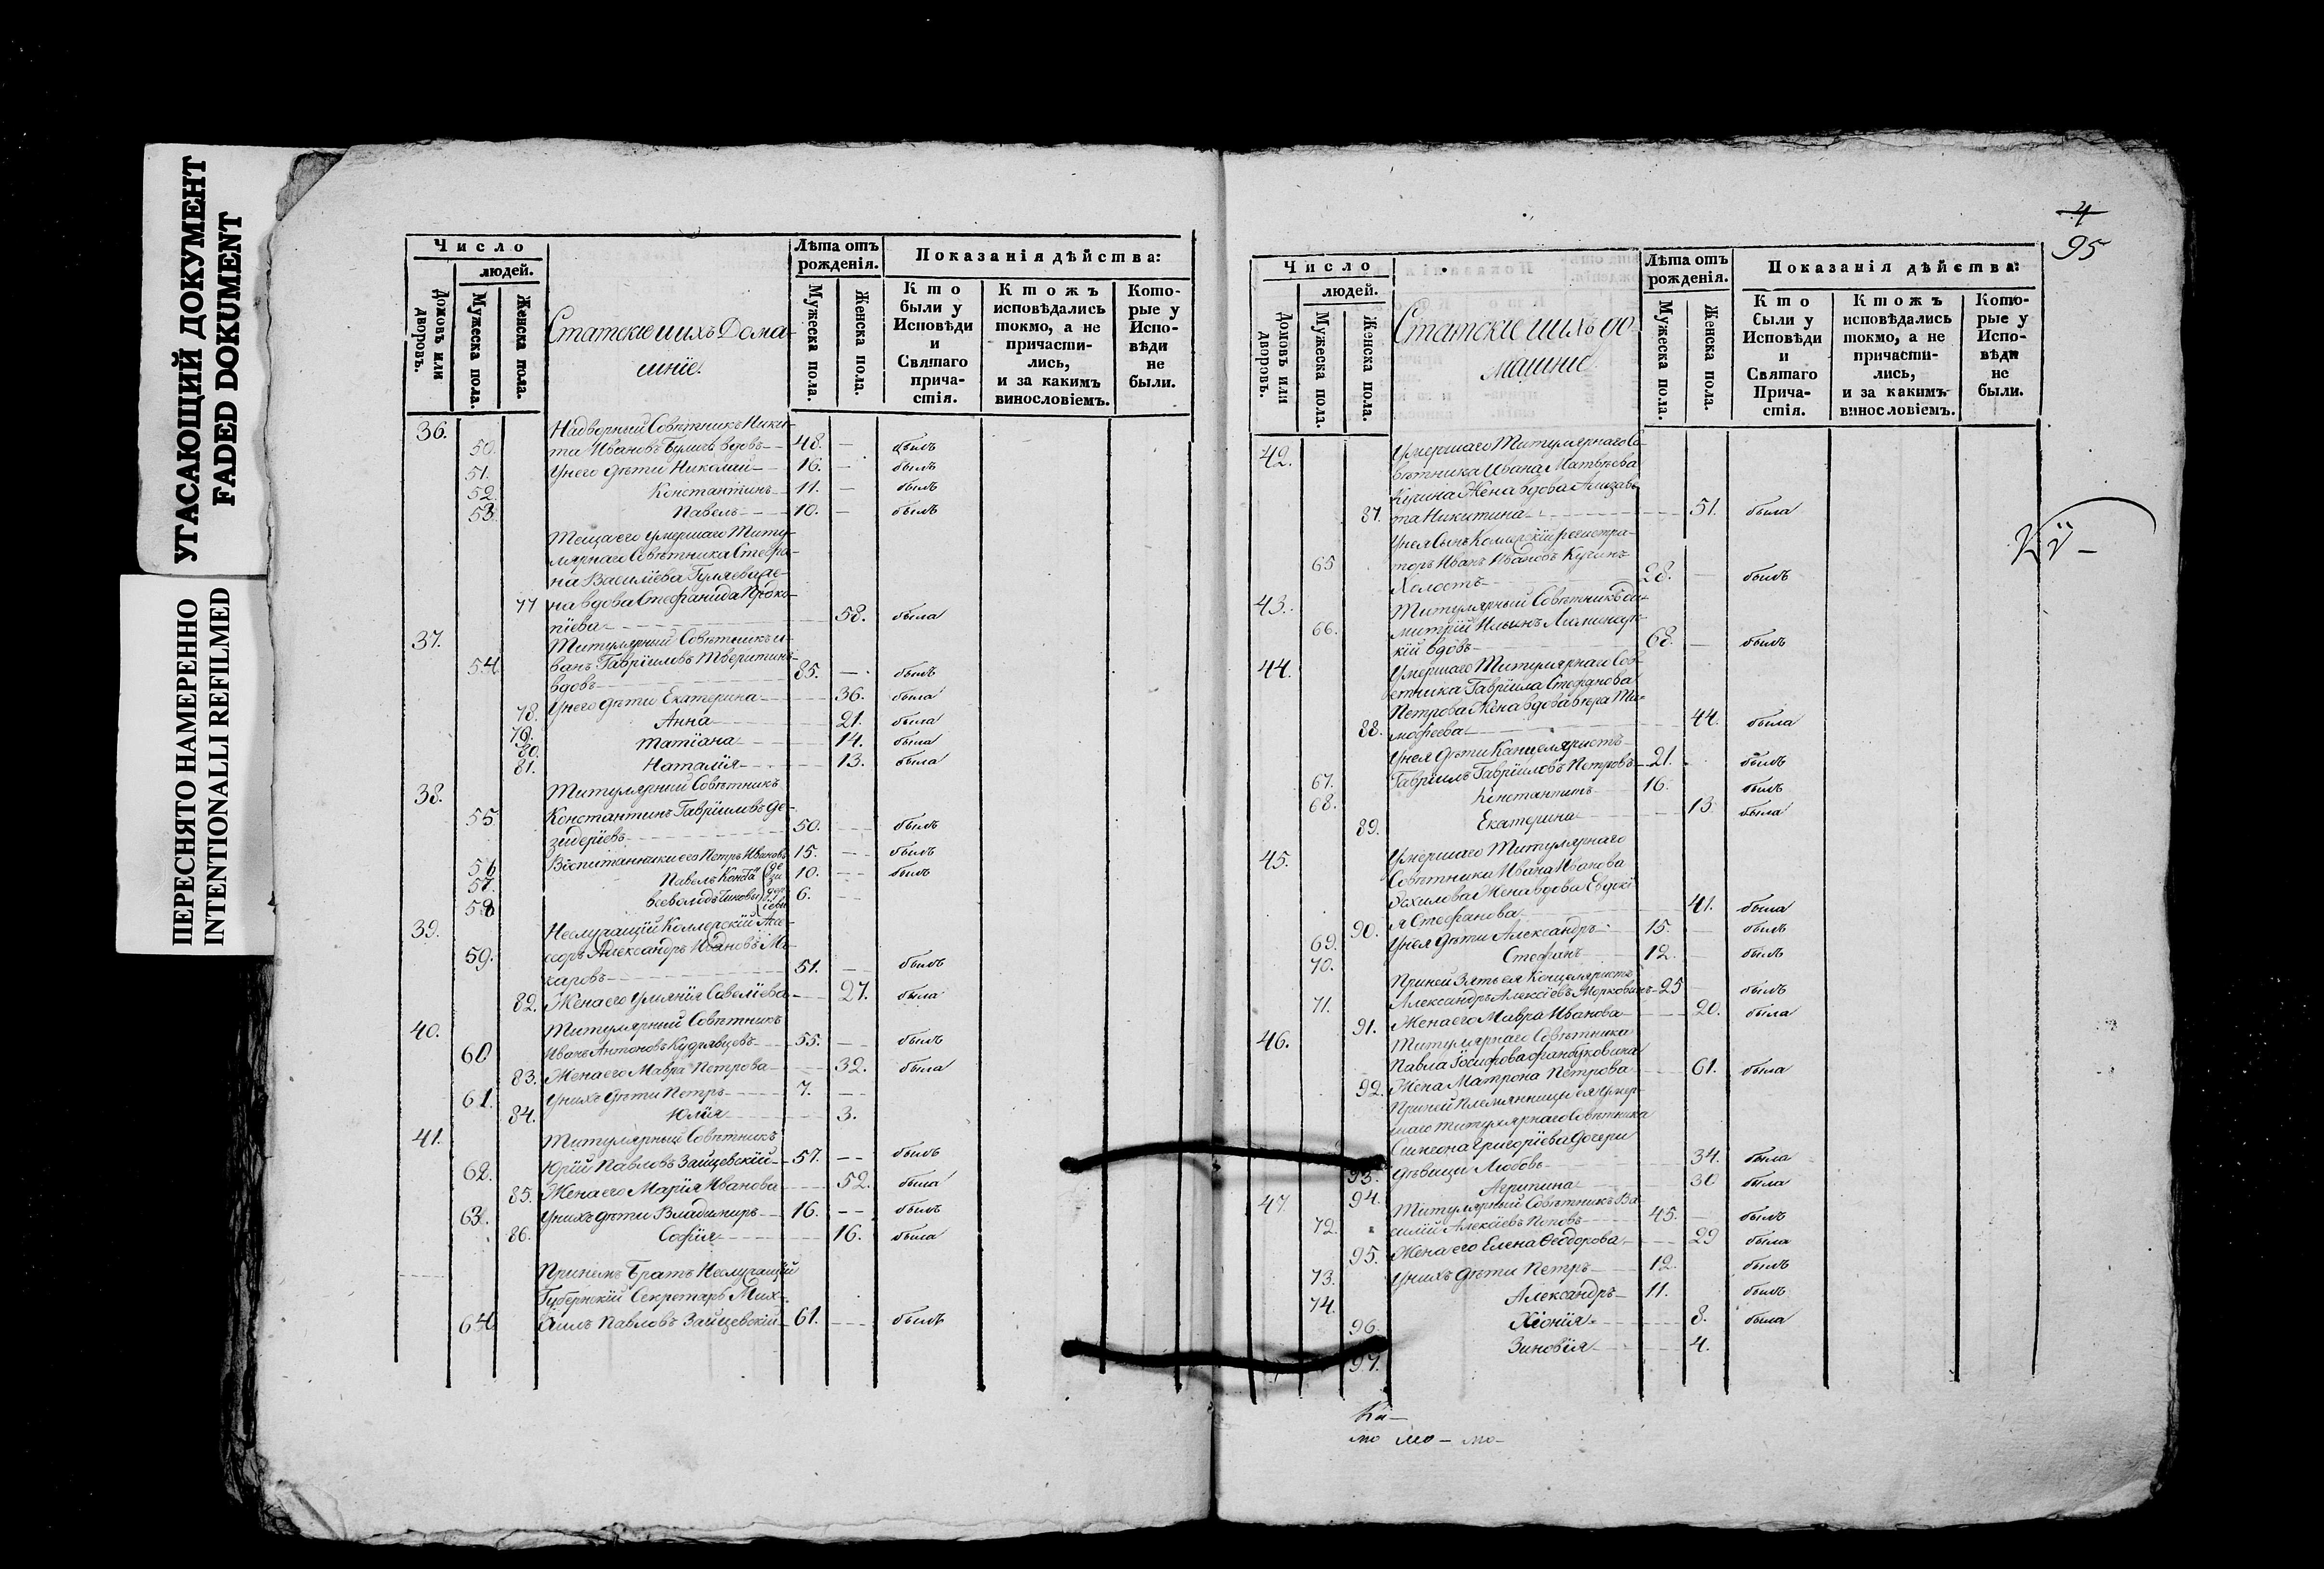 УГАСАЮЩИЙ ДОКУМЕНТ
FADED DOKUMENT
ПЕРЕСНЯТО НАМЕРЕННО
INTENTIONALLI REFILMED
Число
людей.
Домовъ или дворовъ.
Мужеска пола.
Женска пола.
Статскіе и ихъ Дома-
шніе.
Лѣта отъ рожденія.
Мужеска пола.
Женска пола.
Показанія дѣйства:
Кто были у Исповѣди и Святаго причастія.
Ктожъ исповѣдались токмо, а не причастились, и за какимъ винословіемъ.
Которые у Исповѣди не были.
36. Надворный Совѣтникъ Ники-
50. та Ивановъ вдовъ 48. — былъ
51. Унего дѣти Николай 16. — былъ
52. Константинъ 11. — былъ
53. Павелъ 10. — былъ
Теща его умершаго Титу-
лярнаго Совѣтника Стефа-
на Василіева же-
77 на вдова Стефанида Проко-
піева 58. была
37. Титулярный Совѣтникъ И-
54 ванъ Гавріиловъ Тверитинъ
вдовъ 85. — былъ
78. Унего дѣти Екатерина 36. была
79. Анна 21. была
80. Татіана 14. была
81. Наталія 13. была
38. Титулярный Совѣтникъ
55 Константинъ Гавріиловъ Де-
зидеріевъ 50. былъ
56 Воспитанники его Петръ Ивановъ 15. — былъ
57. Павелъ Конста 10. — былъ
58 Всеволодъ тиновы 6. —
39. Неслужащій Коллежскій Ассе-
59. соръ Александръ Ивановъ Ма-
каровъ 51. — былъ
82. Жена его Уліянія Савеліева 27. была
40. Титулярный Совѣтникъ
60 Иванъ Антоновъ Кудрявцевъ 55. — былъ
83. Жена его Мавра Петрова 32. была
61. Унихъ дѣти Петръ 7. —
84. Юлія 3.
41. Титулярный Совѣтникъ
62. Юрій Павловъ Зайцевскій 57. — былъ
85. Жена его Марія Иванова 52. была
63. Унихъ дѣти Владимиръ 16. — былъ
86. Софія 16. была
Принемъ Братъ Неслужащій
Губернскій Секретарь Мих-
64 аилъ Павловъ Зайцевскій 61. былъ
4
95
Число
людей.
Домовъ или дворовъ.
Мужеска пола.
Женска пола.
Статскіе и ихъ до-
машніе
Лѣта отъ рожденія.
Мужеска пола.
Женска пола.
Показанія дѣйства:
Кто были у Исповѣди и Святаго Причастія.
Ктожъ исповѣдались токмо, а не причастились, и за какимъ винословіемъ.
Которые у Исповѣди не были.
42. Умершаго Титулярнаго Со-
вѣтника Ивана Матвѣева
Кучина Жена вдова Елизаве-
87. та Никитина 51. была
Унея Сынъ регистра-
65 торъ Иванъ Ивановъ Кучинъ
Холостъ 28. — былъ
43. Титулярный Совѣтникъ Ди-
66. митрій Ильинъ
кій вдовъ 68. — былъ
44. Умершаго Титулярнаго Сов-
ѣтника Гавріила Стефанова
Петрова Жена вдова Вѣра Ти-
88. мофеева 44. была
Унея дѣти Канцеляристъ
67. Гавріилъ Гавріиловъ Петровъ 21. былъ
68. Константинъ 16. былъ
89. Екатерина 13. была
45. Умершаго Титулярнаго
Совѣтника Ивана Иванова
Жена вдова Евдокі-
90. я Стефанова 41. была
69. Унея дѣти Александръ 15. — былъ
70. Стефанъ 12. — былъ
Приней Зять ея Канцеляристъ
71. Александръ Алексіевъ Морковинъ 25 былъ
91. Жена его Мавра Иванова 20. была
46. Титулярнаго Совѣтника
Павла Іосифова
92. Жена Матрона Петрова 61. была
Приней Племянницы ея умер-
шаго Титулярнаго Совѣтника
Симеона Григоріева дочери
93. дѣвицы Любовь 34. была
94. Агрипина 30 была
47 Титулярный Совѣтникъ Ва-
72. силій Алексіевъ Поповъ 45. — былъ
95. Жена его Елена Феодорова 29 была
73. Унихъ дѣти Петръ 12. былъ
74. Александръ 11. былъ
96. Хіонія 8. была
97. Зиновія 4.